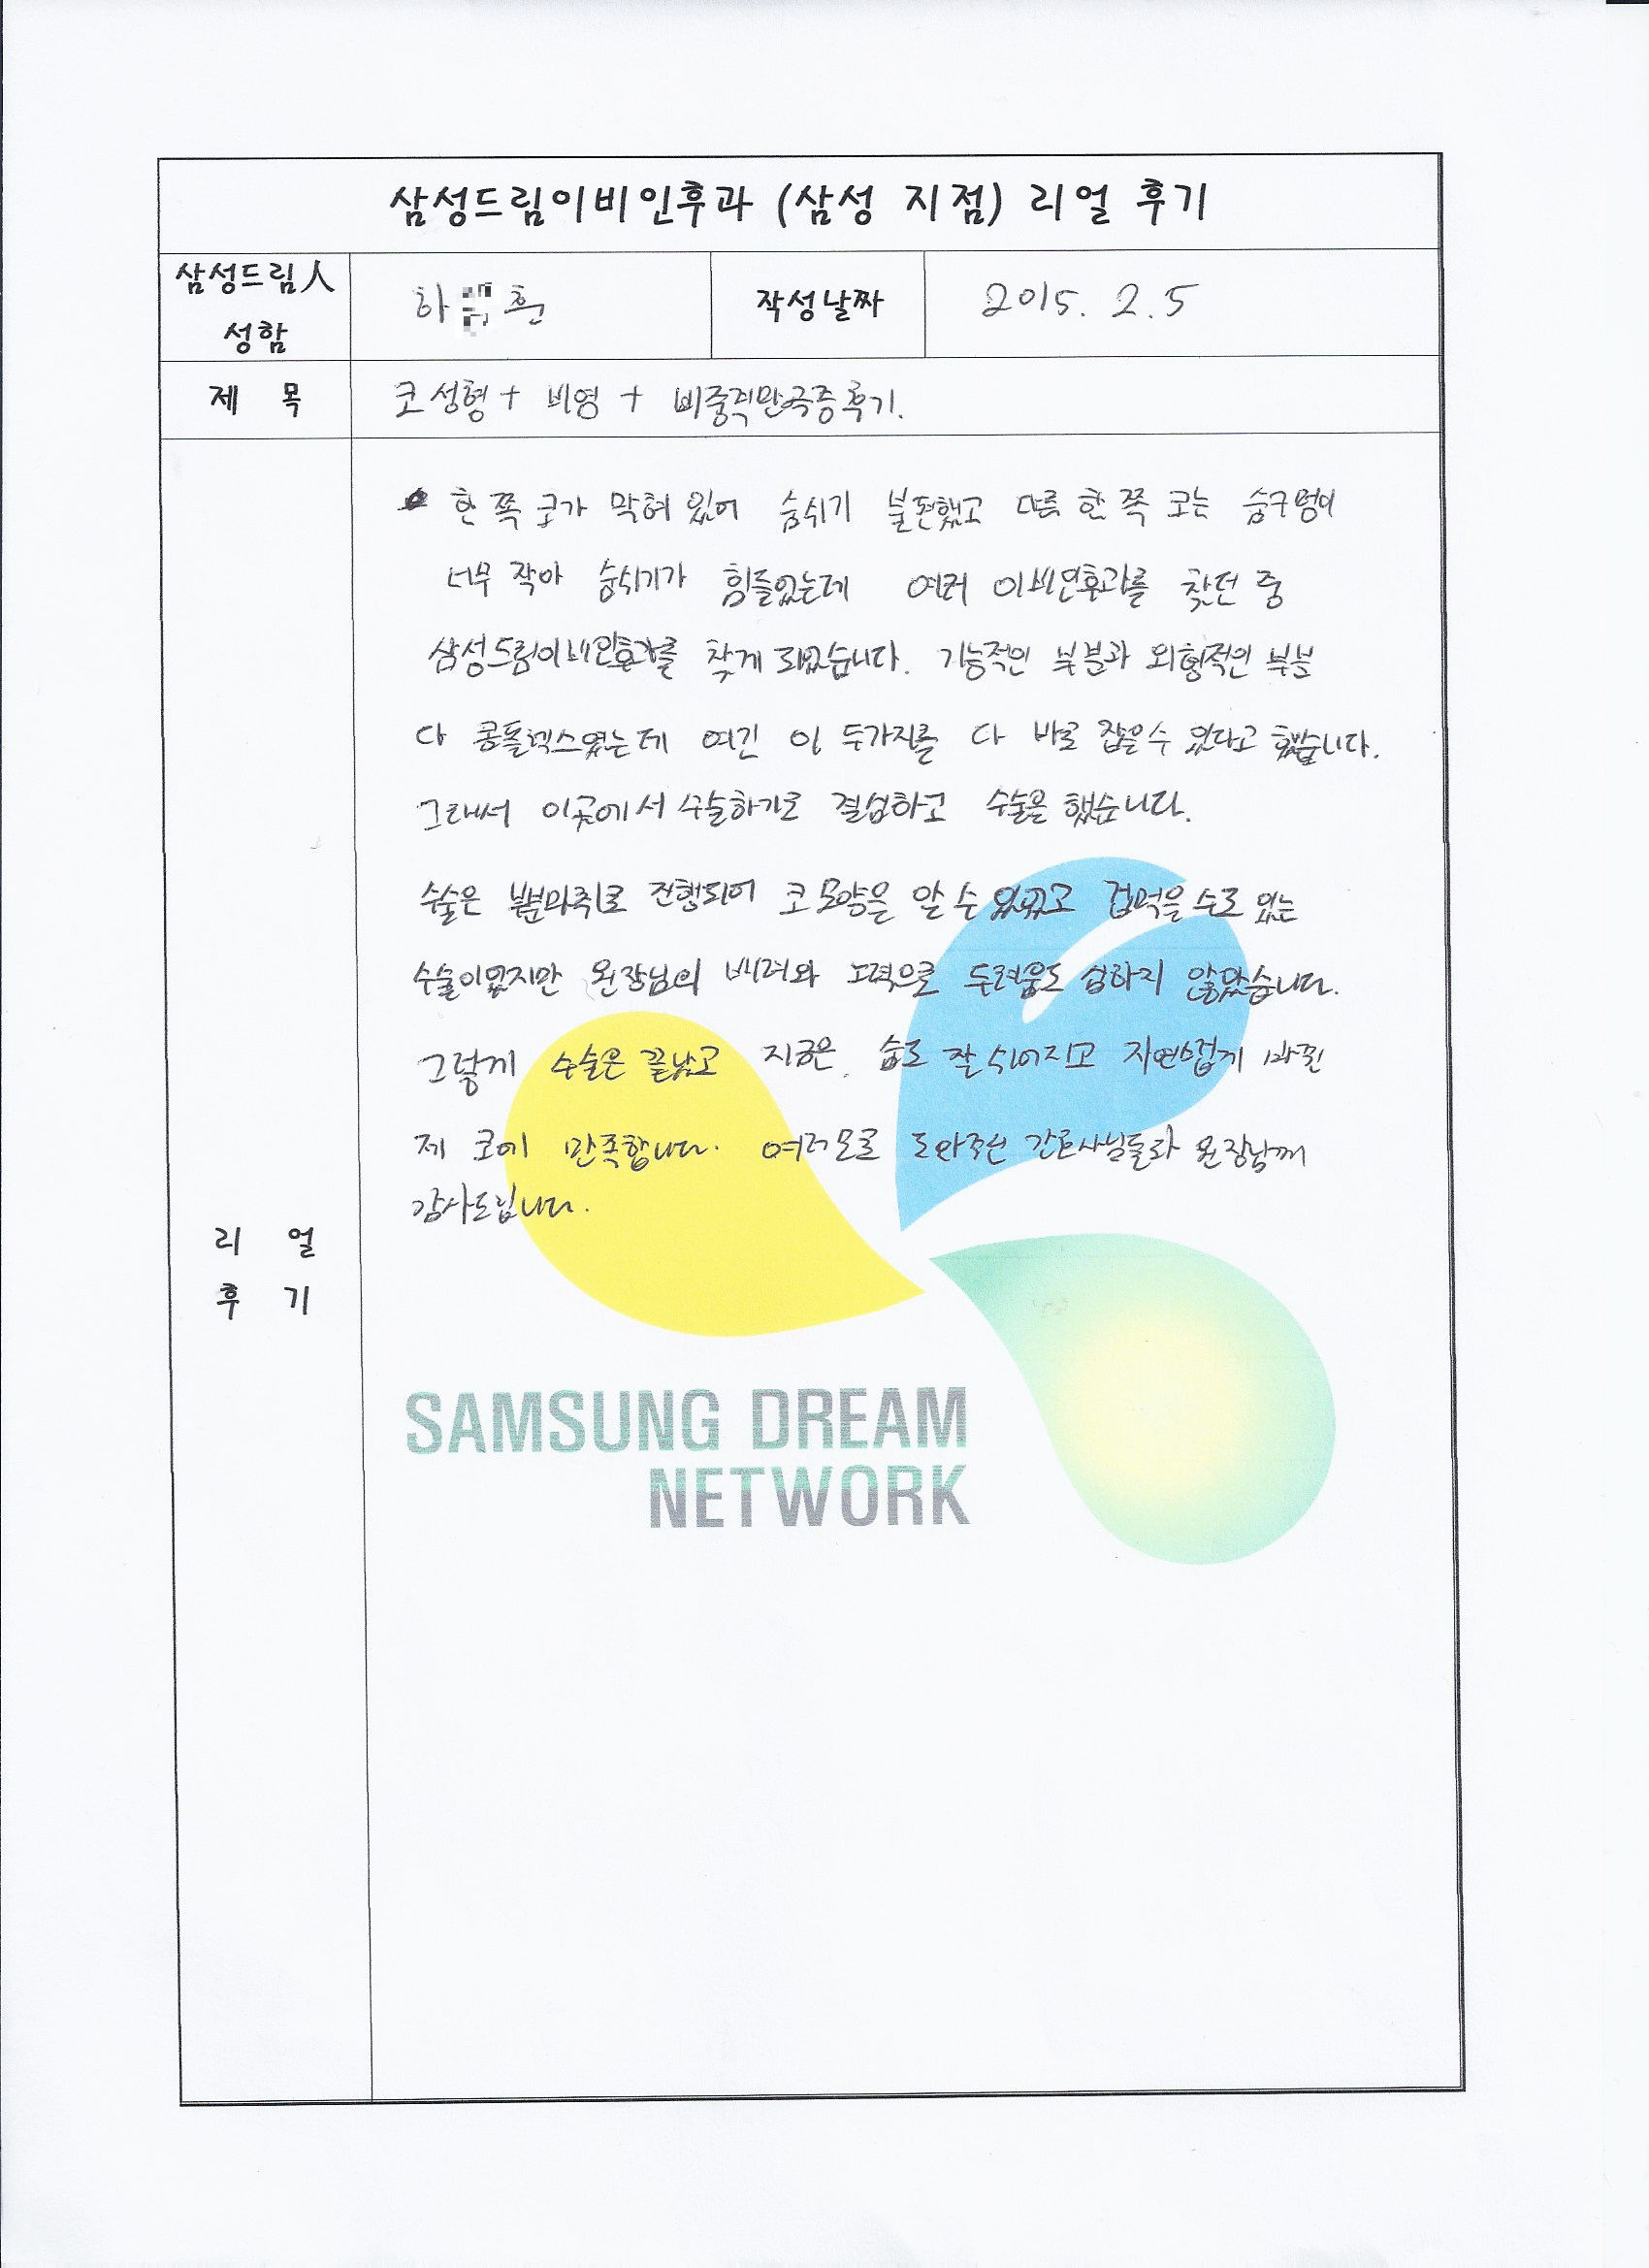 삼성드림이비인후과 (삼성 지점) 리얼 후기
삼성드림人
성함
하 훈
작성날짜
2015. 2. 5
제 목
코성형 + 비염 + 비중격만곡증후기.
한 쪽 코가 막혀 있어 숨쉬기 불편했고 다른 한 쪽 코는 숨구멍이
너무 작아 숨쉬기가 힘들었는데 여러 이비인후과를 찾던 중
삼성드림이비인후과를 찾게 되었습니다. 기능적인 부분과 외형적인 부분
다 콤플렉스였는데 여긴 이 두가지를 다 바로 잡을수 있다고 했습니다.
그래서 이곳에서 수술하기로 결심하고 수술을 했습니다.
수술은 부분마취로 진행되어 코 모양을 알 수 있었고 겁먹을 수도 있는
수술이었지만 원장님의 배려와 노력으로 두려움도 심하지 않았습니다.
그렇게 수술은 끝났고 지금은 숨도 잘 쉬어지고 자연스럽게 바뀐
제 코에 만족합니다. 여러모로 도와주신 간호사님들과 원장님께
감사드립니다.
리 얼
후 기
SAMSUNG DREAM
NETWORK